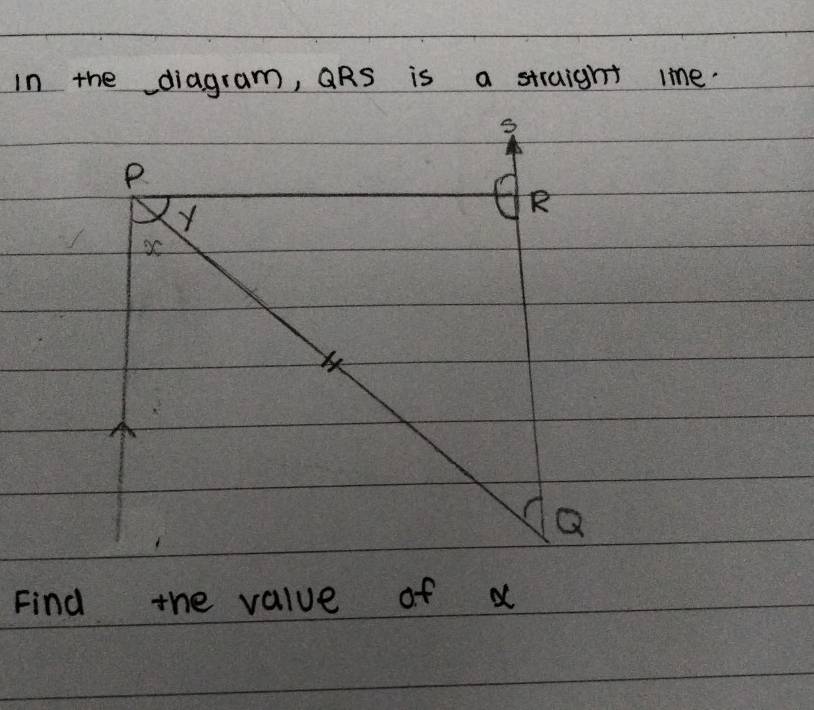 In the diagram, QRS is a straight line.
S
P
R
y
x
Q
Find the value of x